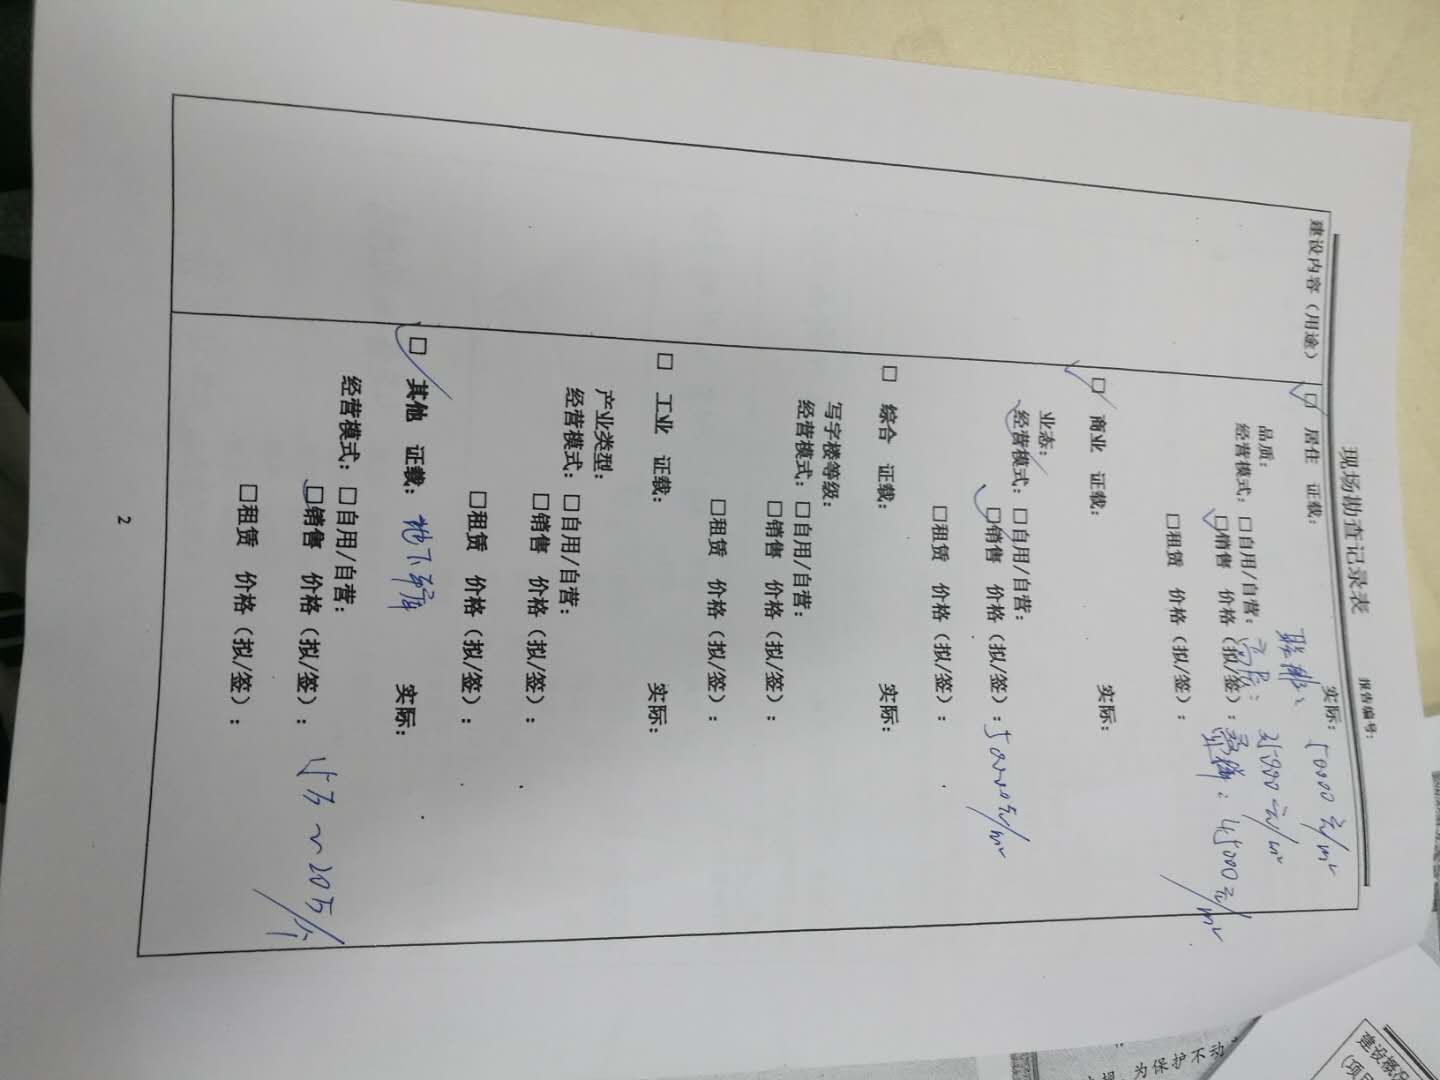 报告编号:
现场勘查记录表
建设内容（用途）
□ 居住 证载: 实际:
联排: 50000元/m²
品质:
经营模式: □自用/自营:
□销售 价格（拟/签）:
45000元/m²
□租赁 价格（拟/签）:
□ 商业 证载: 实际:
业态:
经营模式: □自用/自营:
□销售 价格（拟/签）: 50000元/m²
□租赁 价格（拟/签）:
□ 综合 证载: 实际:
写字楼等级:
经营模式: □自用/自营:
□销售 价格（拟/签）:
□租赁 价格（拟/签）:
□ 工业 证载: 实际:
产业类型:
经营模式: □自用/自营:
□销售 价格（拟/签）:
□租赁 价格（拟/签）:
□ 其他 证载: 地下车库 实际:
经营模式: □自用/自营:
□销售 价格（拟/签）: 15万~20万/个
□租赁 价格（拟/签）:
2
建设概况
(项目
为保护不动